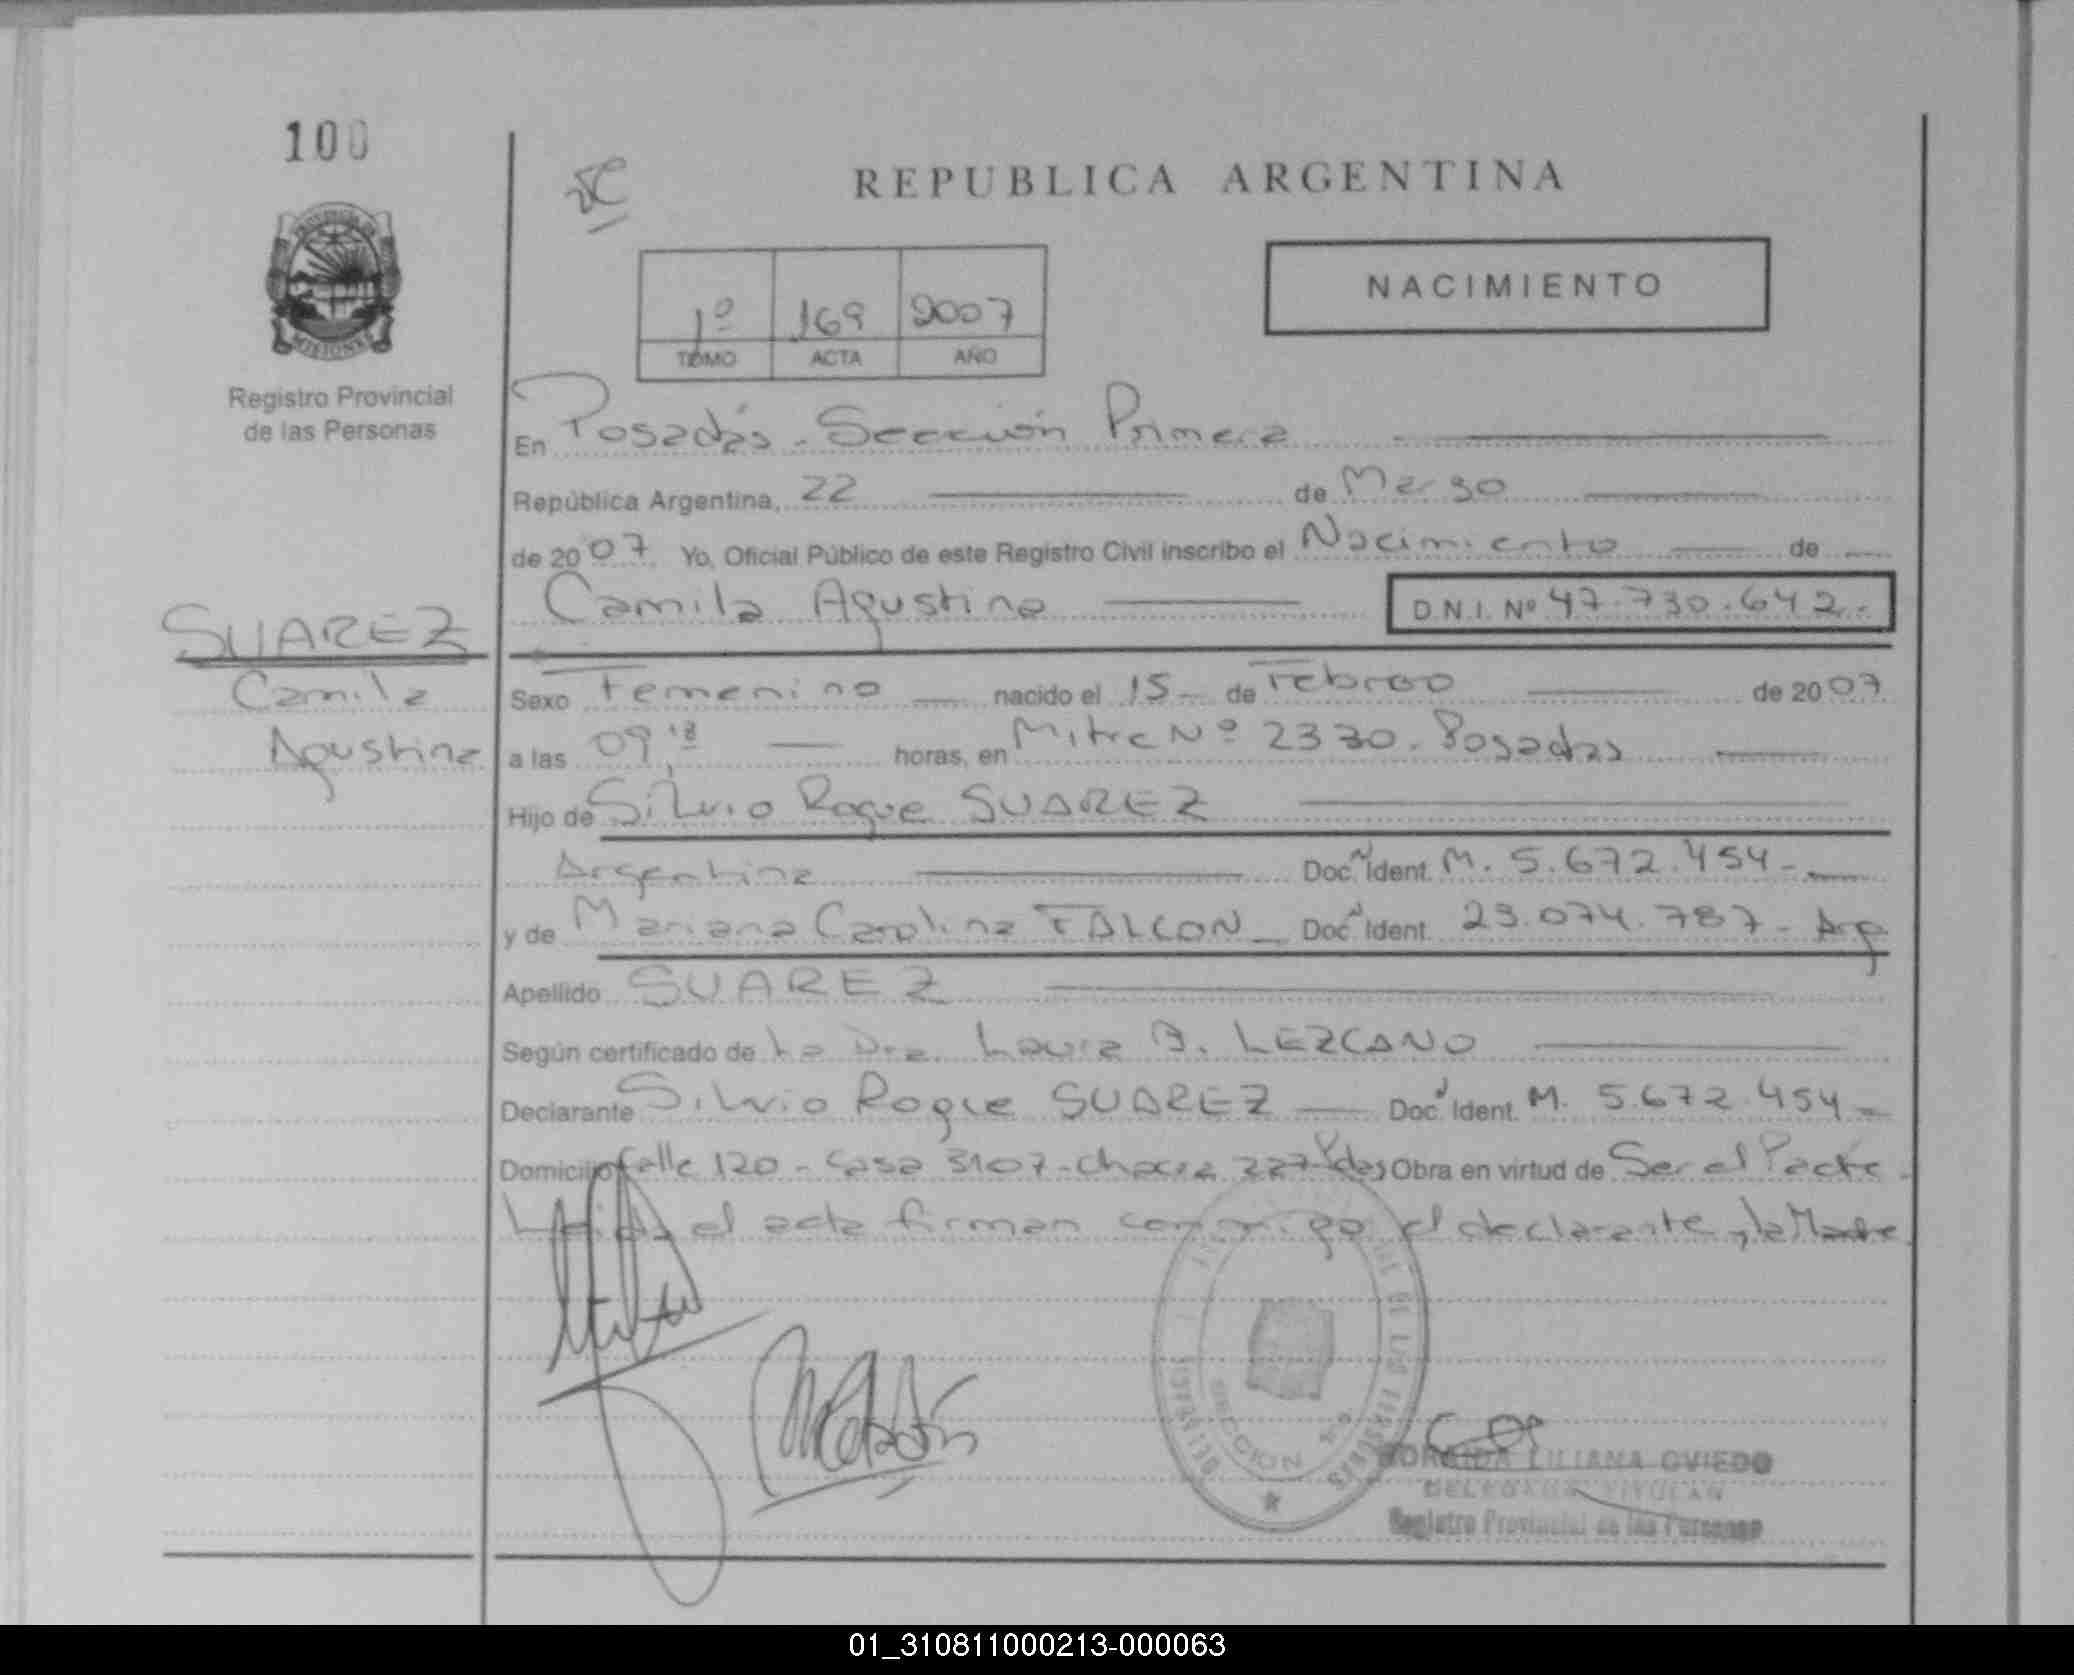 100
REPUBLICA ARGENTINA
PROVINCIA DE
MISIONES
Registro Provincial
de las Personas
1º 169 2007
TOMO ACTA AÑO
NACIMIENTO
En Posadas - Sección Primera
República Argentina, 22 de Marzo
de 2007 Yo, Oficial Público de este Registro Civil inscribo el Nacimiento de
Camila Agustina D.N.I. Nº 47.730.642.-
SUAREZ
Camila
Agustina
Sexo Femenino nacido el 15 de Febrero de 2007
a las 09,18 horas, en Mitre Nº 2330. Posadas
Hijo de Silvio Roque SUAREZ
Argentina Doc. Ident. M. 5.672.454-
y de Mariana Carolina FALCON Doc. Ident. 23.074.787- Arg
Apellido SUAREZ
Según certificado de La Dra. Laura LEZCANO
Declarante Silvio Roque SUAREZ Doc. Ident. M. 5.672.454-
Domicilio Calle 120 - Casa 3107- chacra 227- Pdas Obra en virtud de Ser el Padre.
Leida el acta firman conmigo el declarante y la Madre
SECCION
LILIANA OVIEDO
Registro Provincial de las Personas
01_310811000213-000063